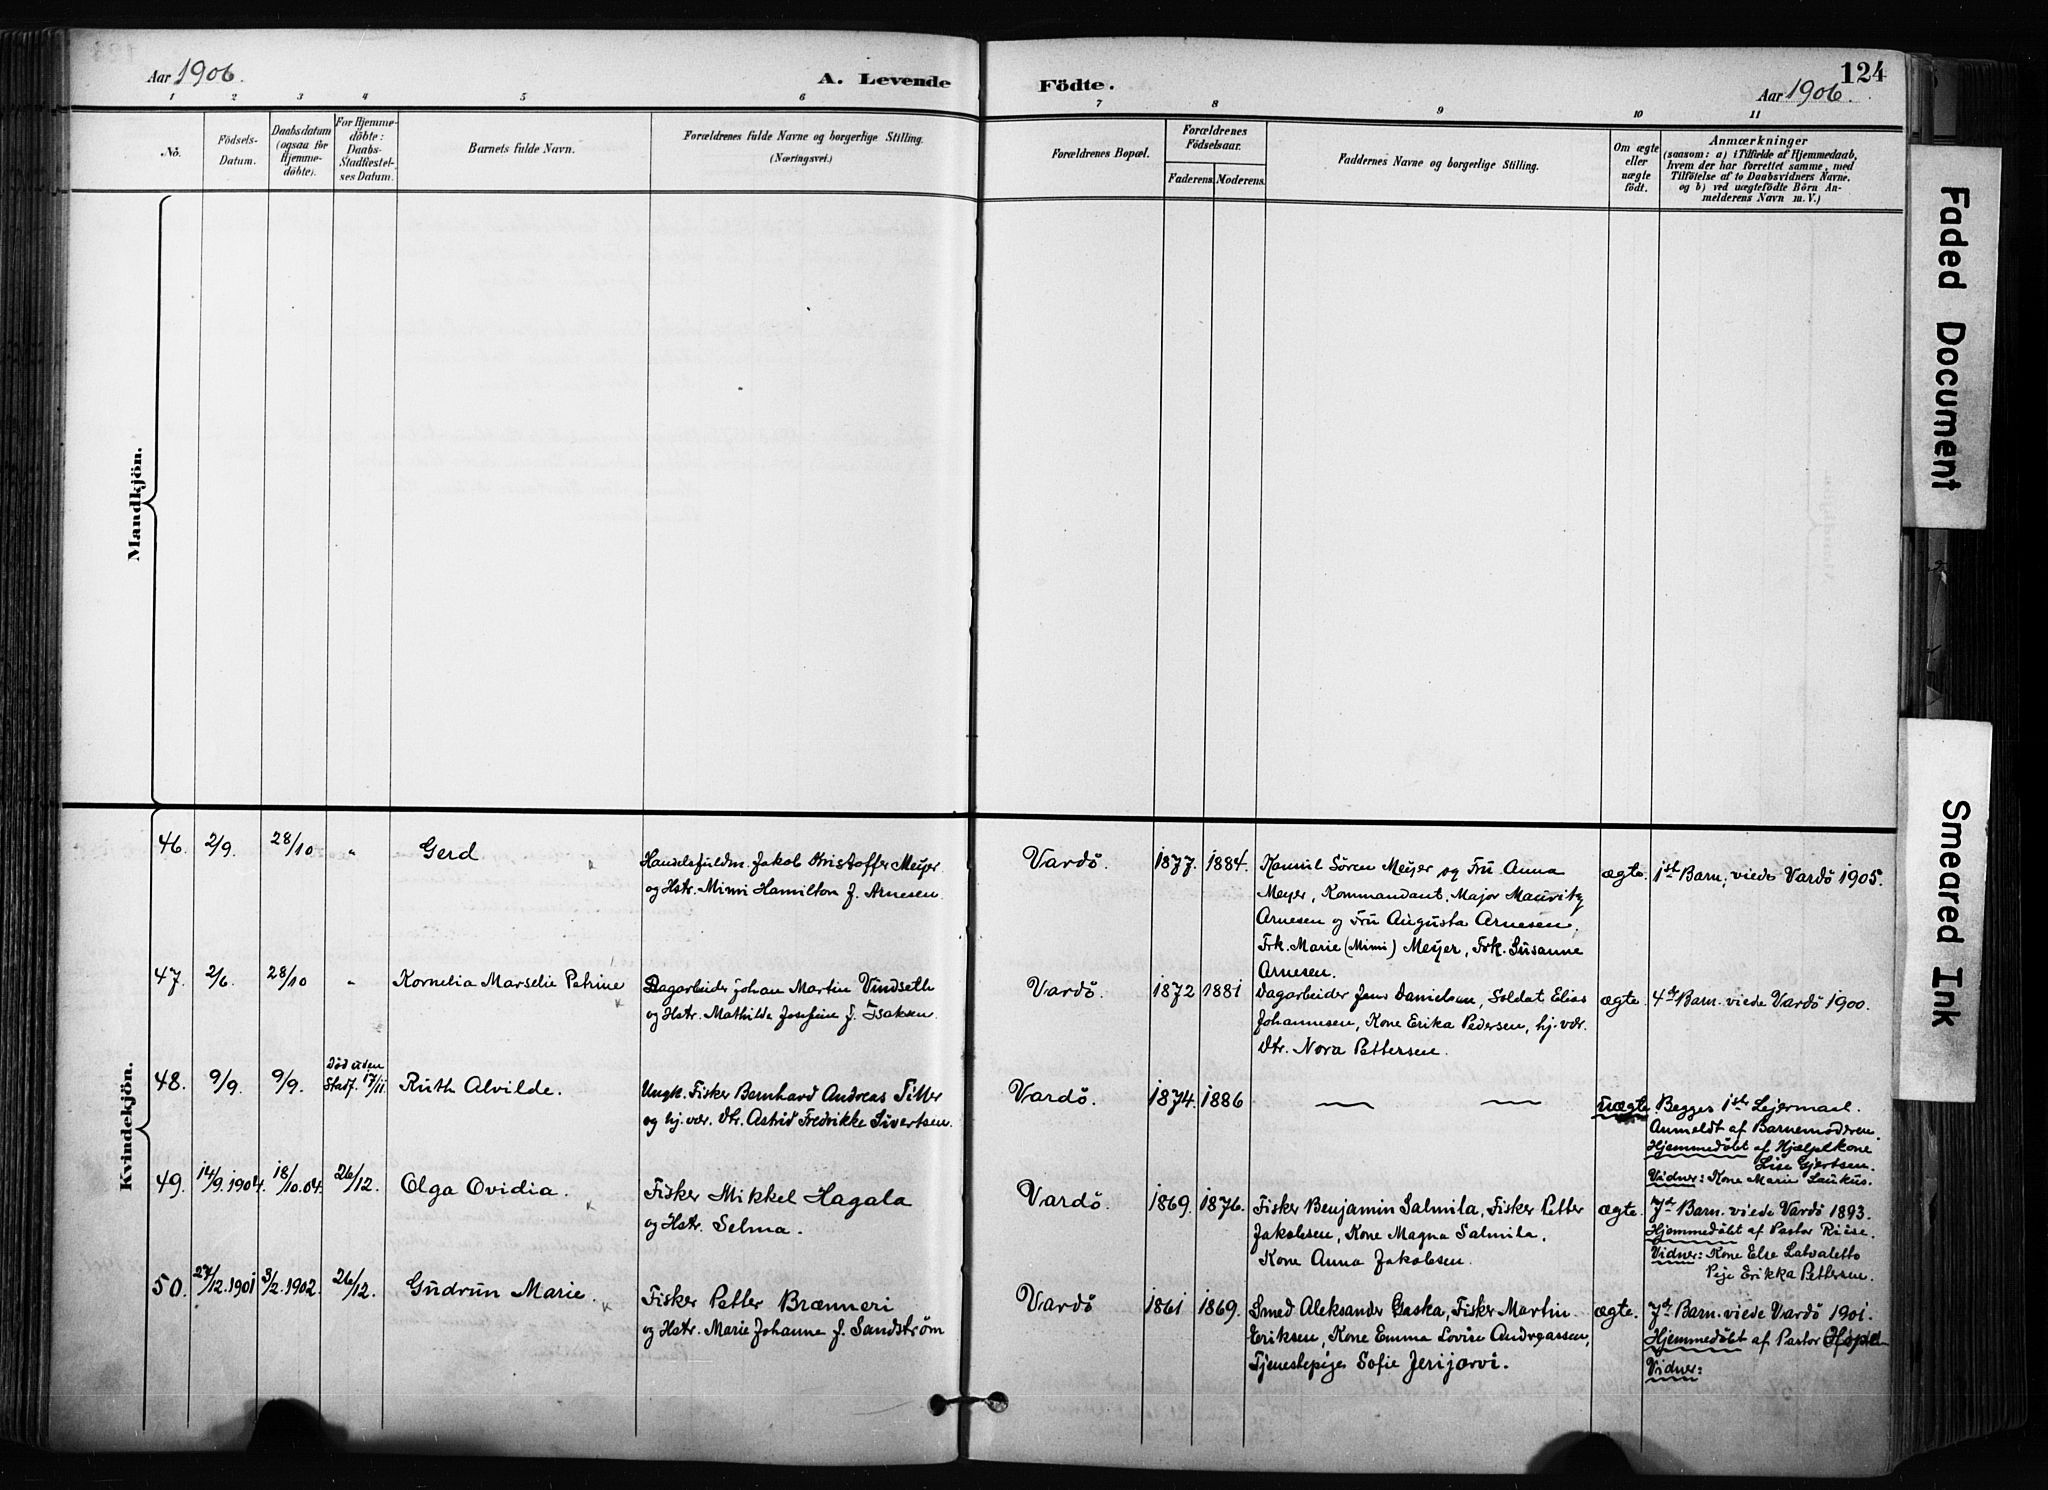 Aar 1906.
A. Levende Födte.
124
Aar 1906.
1 2 3 4 5 6 7 8 9 10 11
No.
Födsels-Datum.
Daabsdatum (ogsaa for Hjemme-döbte).
For Hjemme-döbte: Daabs-Stadfæstel-ses Datum.
Barnets fulde Navn.
Forældrenes fulde Navne og borgerlige Stilling.
(Næringsvei.)
Forældrenes Bopæl.
Forældrenes Födselsaar.
Faderens. Moderens.
Faddernes Navne og borgerlige Stilling.
Om ægte eller uægte födt.
Anmærkninger
(saasom: a) i Tilfælde af Hjemmedaab,
hvem der har forrettet samme, med
Tilföielse af to Daabsvidners Navne,
og b) ved uægtefödte Börn An-
melderens Navn m. V.)
Mandkjön.
Kvindekjön.
46. 2/9. 28/10 " Gerd
Handelsfuldm. Jakob Kristoffer Meyer
og Hstr. Mimi Hamilton f. Arnesen.
Vardö. 1877. 1884.
Konsul Sören Meyer og Fru Anna
Meyer, Kommandant, Major Mauritz
Arnesen og Fru Augusta Arnesen.
Frk. Marie (Mimi) Meyer, Frk. Susanne
Arnesen.
ægte. 1ste Barn; viede Vardö 1905.
47. 2/6. 28/10 " Kornelia Marselie Petrine
Dagarbeider Johan Martin Vindseth
og Hstr. Mathilde Josefine f. Isaksen.
Vardö. 1872 1881
Dagarbeider Jens Danielsen, Soldat Elias
Johannesen, Kone Erika Pedersen, hj. vær.
Dtr. Nora Pettersen.
ægte. 4de Barn. viede Vardö 1900.
48. 9/9. 9/9. Död uden Stadf. 17/11 Ruth Alvilde.
Ungk. Fisker Bernhard Andreas Tiller
og hj. vær. Dtr. Astrid Fredrikke Sivertsen.
Vardö. 1874. 1886
uægte. Begges 1ste Lejermaal.
Anmeldt af Barnemoderen.
Hjemmedöbt af Hjælpekone
Lise Gjertsen.
Vidner: Kone Marie Laukus.
49. 14/9. 1904. 18/10. 04. 26/12. Olga Ovidia.
Fisker Mikkel Hagala
og Hstr. Selma.
Vardö. 1869. 1876.
Fisker Benjamin Salmila, Fisker Petter
Jakobsen, Kone Magna Salmila,
Kone Anna Jakobsen.
ægte. 7de Barn. viede Vardö 1893.
Hjemmedöbt af Pastor Riise.
Vidner: Kone Else Latvaletto
Pige Erikka Pettersen.
50. 27/12. 1901 3/2. 1902. 26/12. Gudrun Marie.
Fisker Petter Brænneri
og Hstr. Marie Johanne f. Sandström
Vardö 1861 1869.
Smed Aleksander Gaska, Fisker Martin
Eriksen, Kone Emma Lovise Andreassen,
Tjenestepige Sofie Jerijarvi.
ægte. 7de Barn. viede Vardö 1901.
Hjemmedöbt af Pastor
Vidner:
Faded Document
Smeared Ink